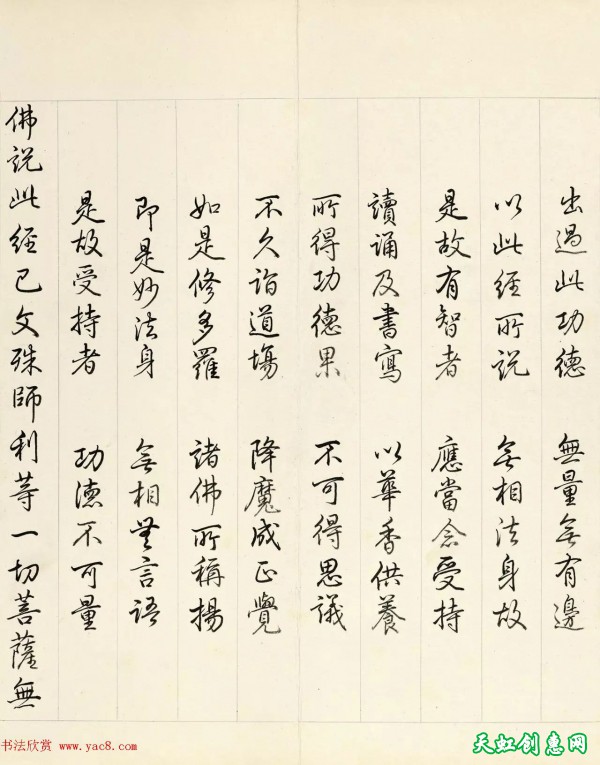 出過此功德　無量無有邊
以此經所說　無相法身故
是故有智者　應當念受持
讀誦及書寫　以華香供養
所得功德果　不可得思議
不久詣道場　降魔成正覺
如是修多羅　諸佛所稱揚
即是妙法身　無相無言語
是故受持者　功德不可量
佛說此經已文殊師利等一切菩薩無
书法欣赏 www.yac8.com
天虹创意网